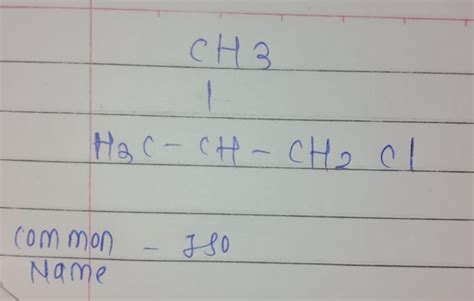 CH3
|
H3C - CH - CH2 Cl
common - Iso
Name